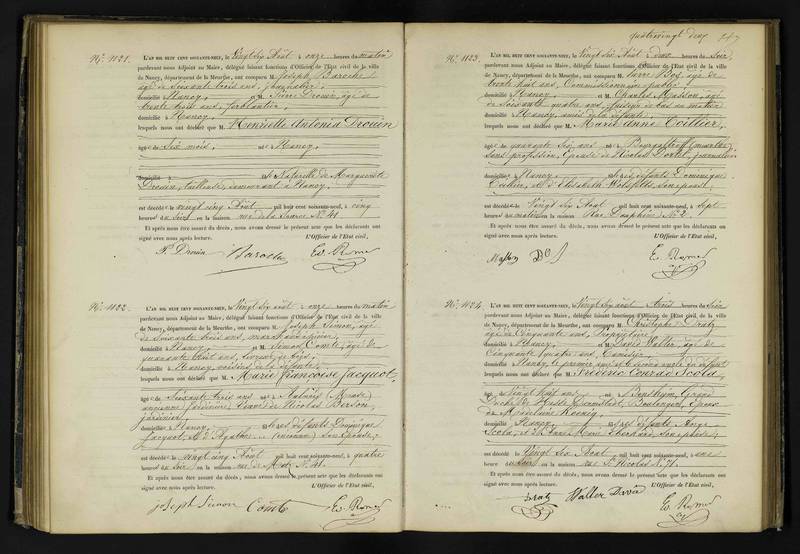 No. 1121.
L'AN MIL HUIT CENT SOIXANTE-NEUF, le Vingt six Août, à onze heures du matin
pardevant nous Adjoint au Maire, délégué faisant fonctions d'Officier de l'Etat civil de la ville
de Nancy, département de la Meurthe, ont comparu M. Joseph Baroche
âgé de Soixante trois ans,
domicilié à Nancy, et M. Pierre Drouin, âgé de
trente trois ans, ferblantier,
domicilié à Nancy,
lesquels nous ont déclaré que M. Henriette Antonia Drouin
âgée de Six mois, née à Nancy
domicilié à fille naturelle de Marguerite
Drouin, tailleuse, demeurant à Nancy,
est décédée le vingt cinq Août mil huit cent soixante-neuf, à cinq
heures du Soir en la maison rue de la Source No. 41
Et après nous être assuré du décès, nous avons dressé le présent acte que les déclarants ont
signé avec nous après lecture. L'Officier de l'Etat civil,
P. Drouin Baroche
No. 1122.
L'AN MIL HUIT CENT SOIXANTE-NEUF, le Vingt six Août, à onze heures du matin
pardevant nous Adjoint au Maire, délégué faisant fonctions d'Officier de l'Etat civil de la ville
de Nancy, département de la Meurthe, ont comparu M. Joseph Simon, âgé
de Soixante trois ans,
domicilié à Nancy, et M. Simon Comte, âgé de
quarante huit ans,
domicilié à Nancy, voisins de la défunte,
lesquels nous ont déclaré que M. Marie françoise Jacquot,
âgée de Soixante trois ans née à (Meuse)
ancienne jardinière, Veuve de Nicolas
jardinier,
domiciliée à Nancy, fille des défunts Dominique
Jacquot, et d'Agathe (inconnu) son épouse,
est décédée le vingt cinq Août mil huit cent soixante-neuf, à quatre
heures du Soir en la maison rue de No. 41.
Et après nous être assuré du décès, nous avons dressé le présent acte que les déclarants ont
signé avec nous après lecture. L'Officier de l'Etat civil,
Joseph Simon Comte
quatrevingt deux 247
No. 1123.
L'AN MIL HUIT CENT SOIXANTE-NEUF, le Vingt six Août, à deux heures du Soir
pardevant nous Adjoint au Maire, délégué faisant fonctions d'Officier de l'Etat civil de la ville
de Nancy, département de la Meurthe, ont comparu M. Pierre âgé de
trente huit ans, Commissionnaire public,
domicilié à Nancy, et M. Charles Masson, âgé
de Soixante quatre ans, faiseur de bas au métier
domicilié à Nancy, amis de la défunte,
lesquels nous ont déclaré que M. Marie Anne
âgée de quarante six ans née à (Meurthe)
sans profession, Epouse de Nicolas journalier
domiciliée à Nancy, fille des défunts Dominique
et d'Elisabeth son épouse,
est décédée le Vingt six Août mil huit cent soixante-neuf, à sept
heures du matin en la maison Rue Dauphine No. 2.
Et après nous être assuré du décès, nous avons dressé le présent acte que les déclarants ont
signé avec nous après lecture. L'Officier de l'Etat civil,
No. 1124.
L'AN MIL HUIT CENT SOIXANTE-NEUF, le Vingt six Août, à trois heures du Soir
pardevant nous Adjoint au Maire, délégué faisant fonctions d'Officier de l'Etat civil de la ville
de Nancy, département de la Meurthe, ont comparu M. Christophe
âgé de Cinquante ans, Propriétaire,
domicilié à Nancy, et M. David Walter, âgé de
Cinquante quatre ans,
domicilié à Nancy, le premier ami et le second oncle du défunt
lesquels nous ont déclaré que M. Frédéric Conrad Scola,
âgé de Vingt huit ans né à Grand
Duché de Hesse Darmstadt, Boulanger, Epoux
de Madelaine Koenig,
domicilié à Nancy, fils des défunts
Scola, et de Marie son épouse,
est décédé le Vingt six Août mil huit cent soixante-neuf, à une
heure en la maison rue St. Nicolas No. 71.
Et après nous être assuré du décès, nous avons dressé le présent acte que les déclarants ont
signé avec nous après lecture. L'Officier de l'Etat civil,
Walter David